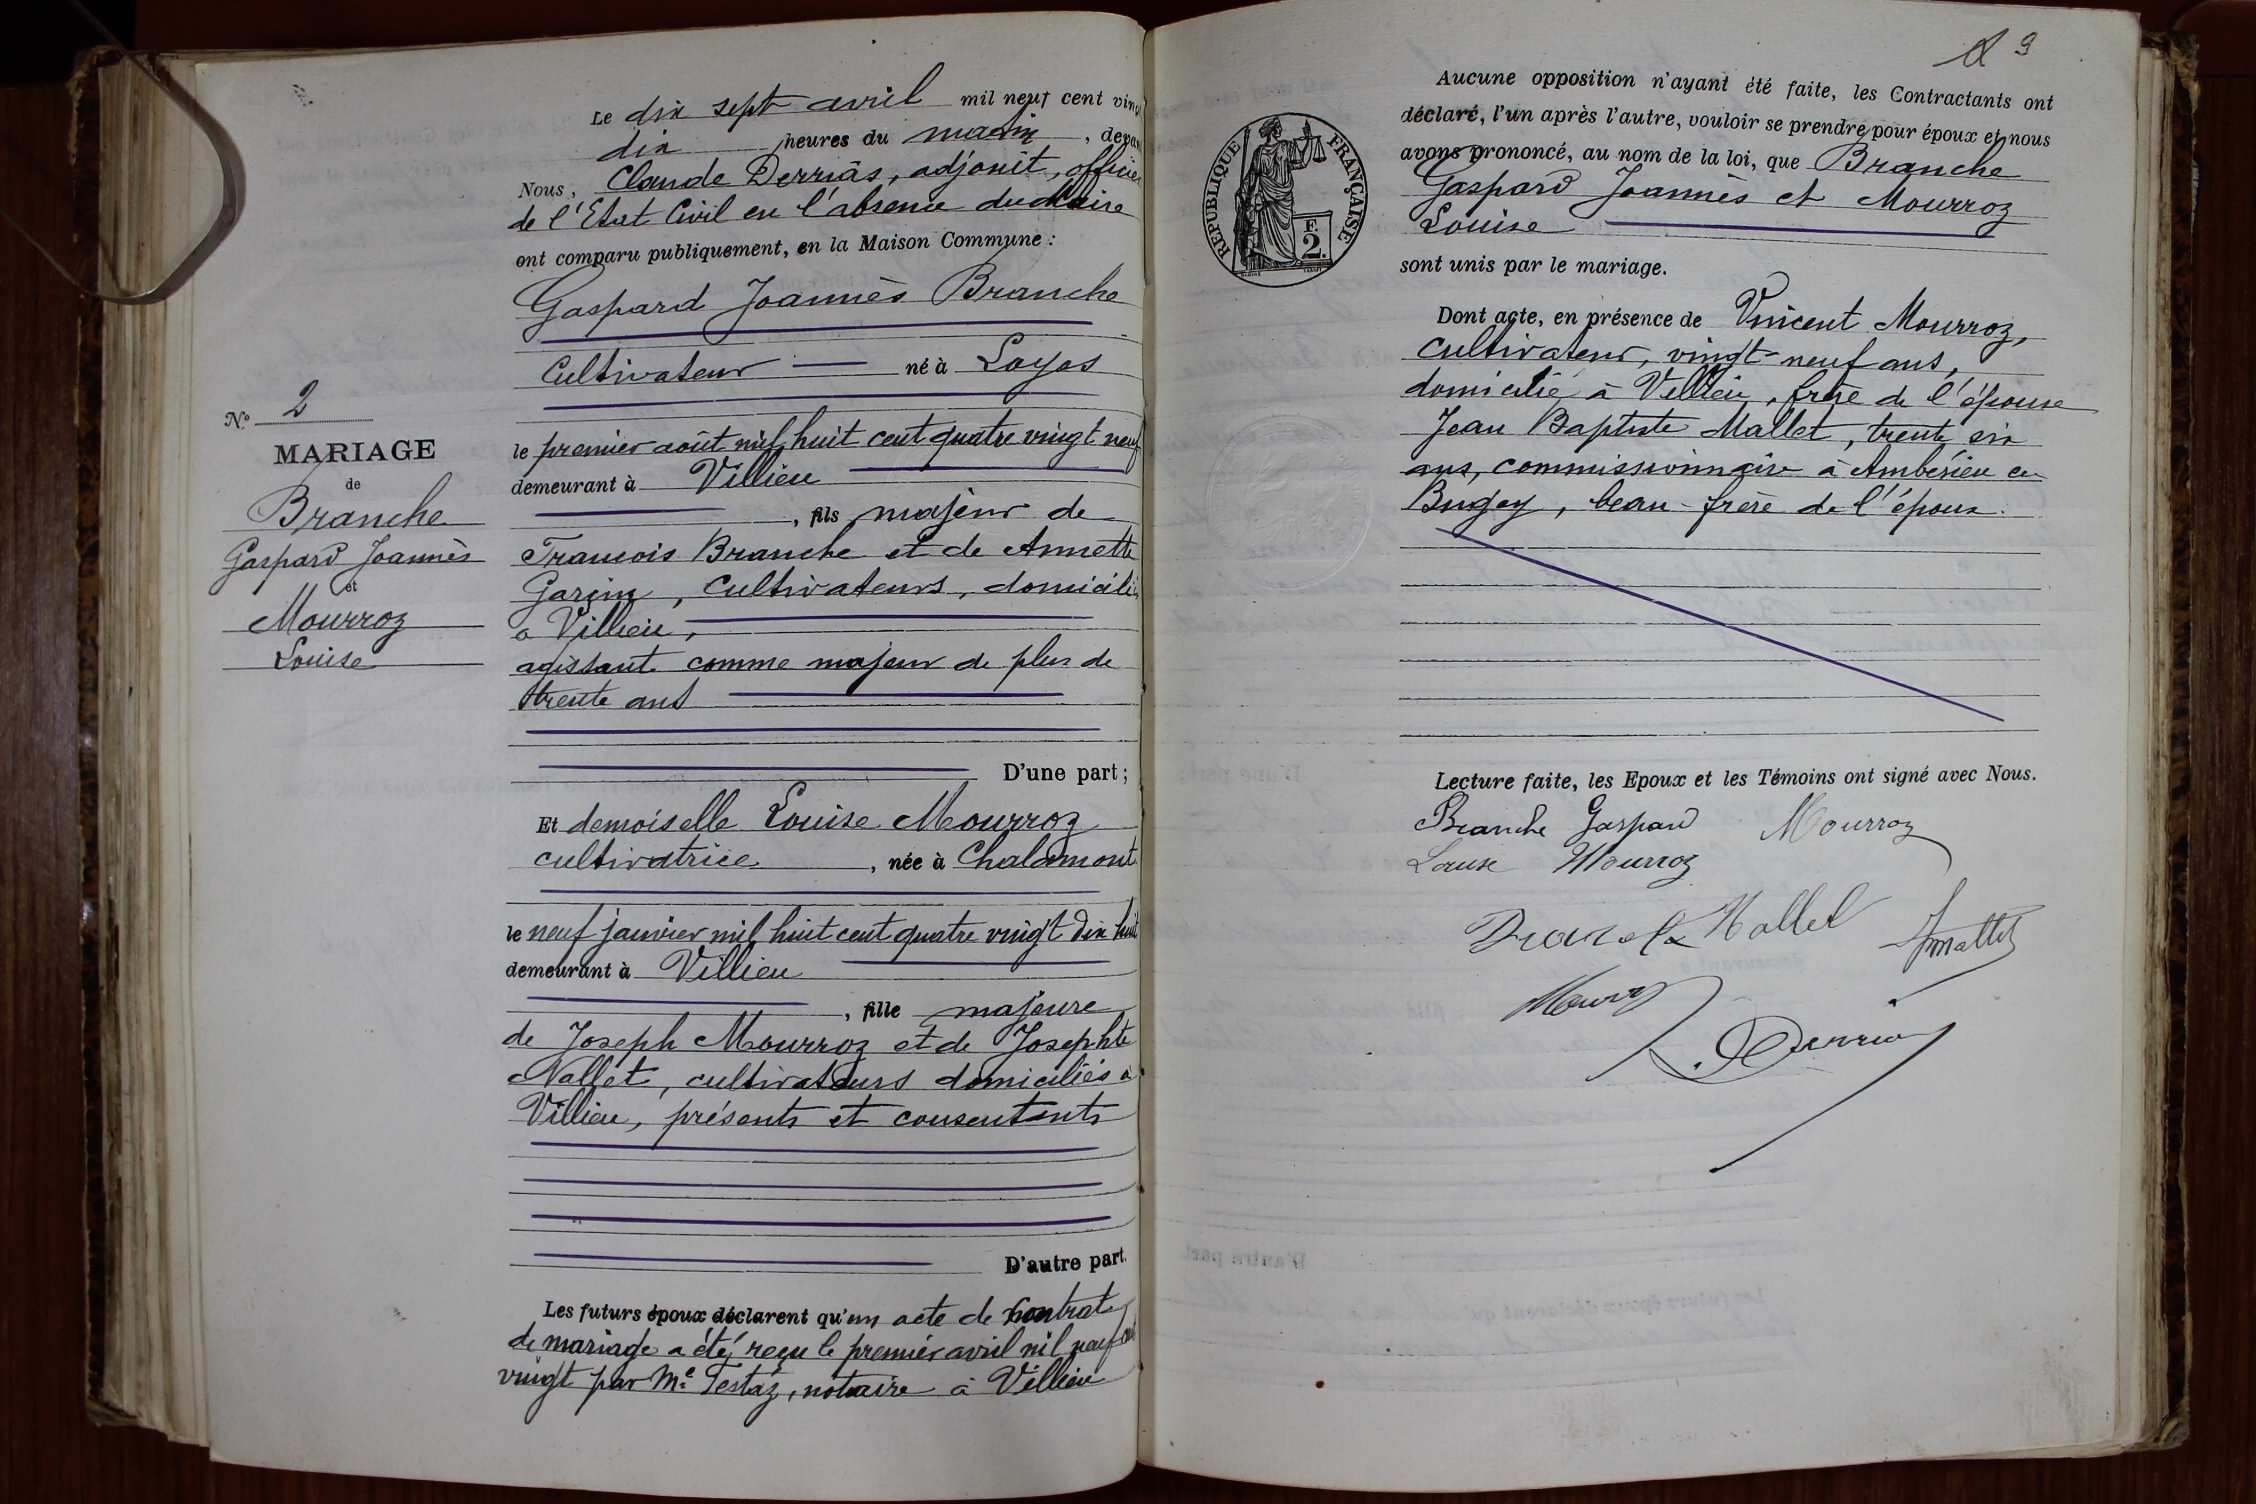 Le dix sept avril mil neuf cent vingt
dix heures du matin, devant
Nous, Claude Derrias, adjoint, officier
de l'Etat Civil en l'absence du Maire
ont comparu publiquement, en la Maison Commune :
Gaspard Joannès Branche
cultivateur né à Loyes
le premier août mil huit cent quatre vingt neuf
demeurant à Villieu
, fils majeur de
Francois Branche et de Annette
Garçin, cultivateurs, domiciliés
a Villieu,
agissant comme majeur de plus de
trente ans
D'une part ;
Et demoiselle Louise Mourroz
cultivatrice, née à Chalamont
le neuf janvier mil huit cent quatre vingt dix huit
demeurant à Villieu
, fille majeure
de Joseph Mourroz et de Josephte
Nallet, cultivateurs domiciliés à
Villieu, présents et consentants
D'autre part.
Les futurs époux déclarent qu'un acte de contrat
de mariage a été reçu le premier avril mil neuf cent
vingt par Me Testaz, notaire à Villieu
N° 2
MARIAGE
de
Branche
Gaspard Joannès
et
Mourroz
Louise
9
RÉPUBLIQUE FRANÇAISE
F.
2.
Aucune opposition n'ayant été faite, les Contractants ont
déclaré, l'un après l'autre, vouloir se prendre pour époux et nous
avons prononcé, au nom de la loi, que Branche
Gaspard Joannès et Mourroz
Louise
sont unis par le mariage.
Dont acte, en présence de Vincent Mourroz,
cultivateur, vingt-neuf ans,
domicilié à Villieu, frère de l'épouse
Jean Baptiste Mallet, trente six
ans, commissionnaire à Ambérieu en
Bugey, beau-frère de l'époux.
Lecture faite, les Epoux et les Témoins ont signé avec Nous.
Branche Gaspard Mourroz
Louise Mourroz
Mallet
Mourroz
Derrias